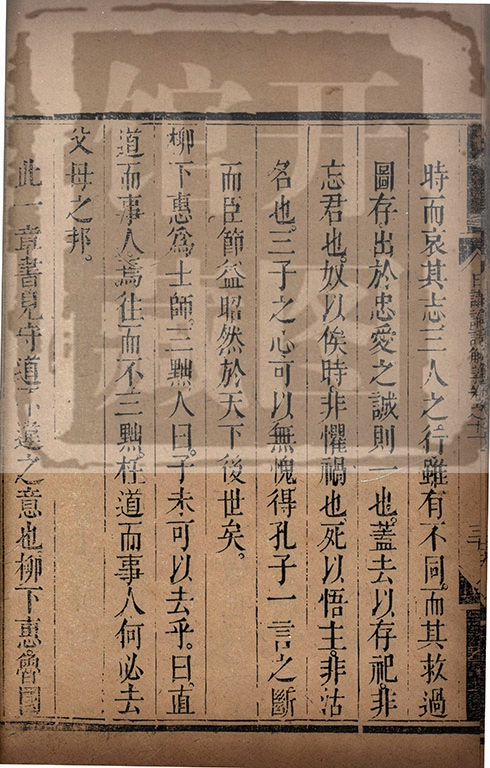 時而哀其志三人之行雖有不同而其救過
圖存出於忠愛之誠則一也蓋去以存祀非
忘君也奴以俟時非懼禍也死以悟主非沽
名也三子之心可以無愧得孔子一言之斷
而臣節益昭然於天下後世矣
柳下惠爲士師三黜人曰子未可以去乎曰直
道而事人焉往而不三黜枉道而事人何必去
父母之邦
此一章書見守道不違之意也柳下惠魯國